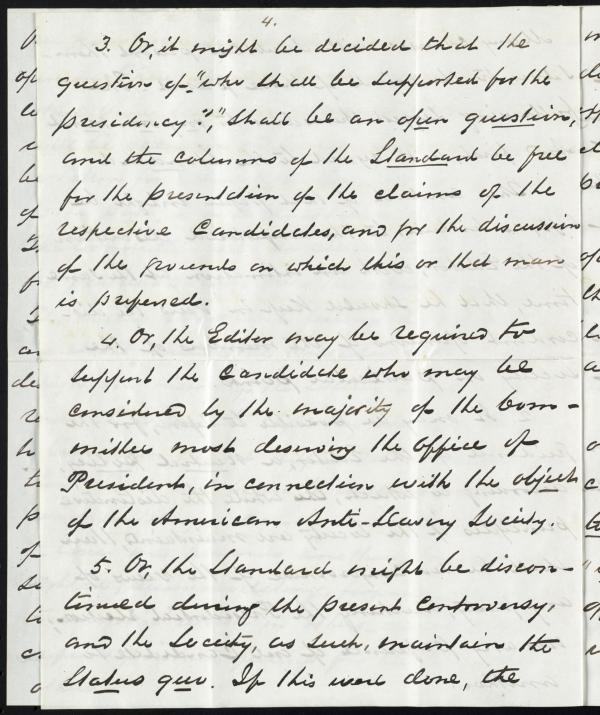 4.
3. Or, it might be decided that the
question of, "who shall be supported for the
presidency?," shall be an open question,
and the columns of the Standard be free
for the presentation of the claims of the
respective Candidates, and for the discussion
of the grounds on which this or that man
is preferred.
4. Or, the Editor may be required to
support the Candidate who may be
considered by the majority of the Com-
mittee most deserving the office of
President, in connection with the object
of the American Anti-Slavery Society.
5. Or, the Standard might be discon-
tinued during the present controversy,
and the Society, as such, maintain the
Status quo. If this were done, the